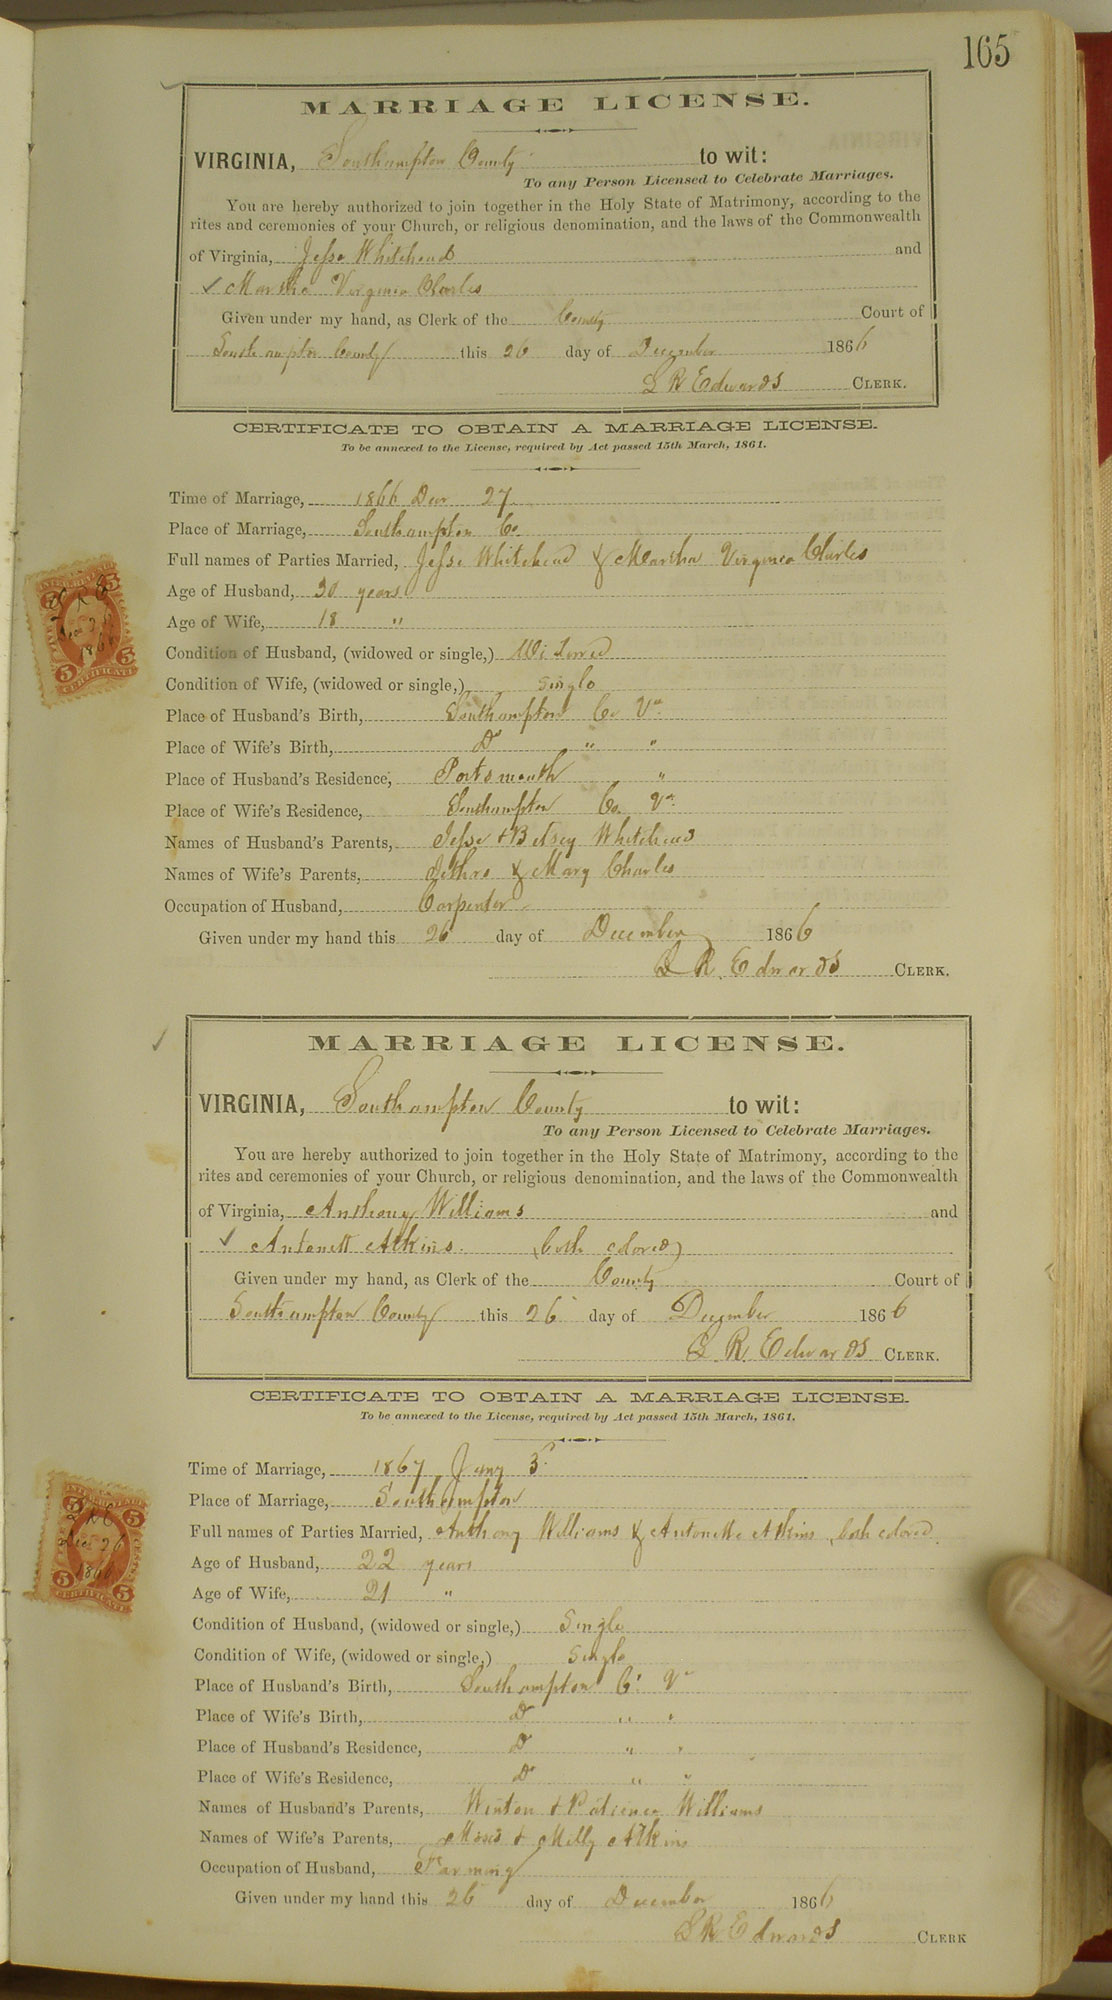 165
MARRIAGE LICENSE.
VIRGINIA, Southampton County to wit:
To any Person Licensed to Celebrate Marriages.
You are hereby authorized to join together in the Holy State of Matrimony, according to the
rites and ceremonies of your Church, or religious denomination, and the laws of the Commonwealth
of Virginia, Jesse Whitehead and
✓ Martha Virginia Charles
Given under my hand, as Clerk of the County Court of
Southampton County this 26 day of December 1866
L R Edwards CLERK.
CERTIFICATE TO OBTAIN A MARRIAGE LICENSE.
To be annexed to the License, required by Act passed 15th March, 1861.
Time of Marriage, 1866 Decr 27
Place of Marriage, Southampton Co.
Full names of Parties Married, Jesse Whitehead & Martha Virginia Charles
Age of Husband, 30 years
Age of Wife, 18 "
Condition of Husband, (widowed or single,) Widowed
Condition of Wife, (widowed or single,) single
Place of Husband's Birth, Southampton Co Va
Place of Wife's Birth, Do " "
Place of Husband's Residence, Portsmouth "
Place of Wife's Residence, Southampton Co. Va.
Names of Husband's Parents, Jesse & Betsey Whitehead
Names of Wife's Parents, Jethro & Mary Charles
Occupation of Husband, Carpenter
Given under my hand this 26 day of December 1866
L R. Edwards CLERK.
INTER. REVENUE
5 5
L R E
Dec 26
1866
5 5
CERTIFICATE
MARRIAGE LICENSE.
VIRGINIA, Southampton County to wit:
To any Person Licensed to Celebrate Marriages.
You are hereby authorized to join together in the Holy State of Matrimony, according to the
rites and ceremonies of your Church, or religious denomination, and the laws of the Commonwealth
of Virginia, Anthony Williams and
✓ Antonett Atkins. (both colored)
Given under my hand, as Clerk of the County Court of
Southampton County this 26 day of December 1866
L. R. Edwards CLERK.
CERTIFICATE TO OBTAIN A MARRIAGE LICENSE.
To be annexed to the License, required by Act passed 15th March, 1861.
Time of Marriage, 1867 Jany 3d
Place of Marriage, Southampton
Full names of Parties Married, Anthony Williams & Antonette Atkins, both colored
Age of Husband, 22 years
Age of Wife, 21 "
Condition of Husband, (widowed or single,) Single
Condition of Wife, (widowed or single,) single
Place of Husband's Birth, Southampton Co Va
Place of Wife's Birth, Do " "
Place of Husband's Residence, Do " "
Place of Wife's Residence, Do " "
Names of Husband's Parents, Winton & Patience Williams
Names of Wife's Parents, Moses & Milly Atkins
Occupation of Husband, Farming
Given under my hand this 26 day of December 1866
L R Edwards CLERK
5 5
L R E
Dec 26
1866
5 5
CERTIFICATE